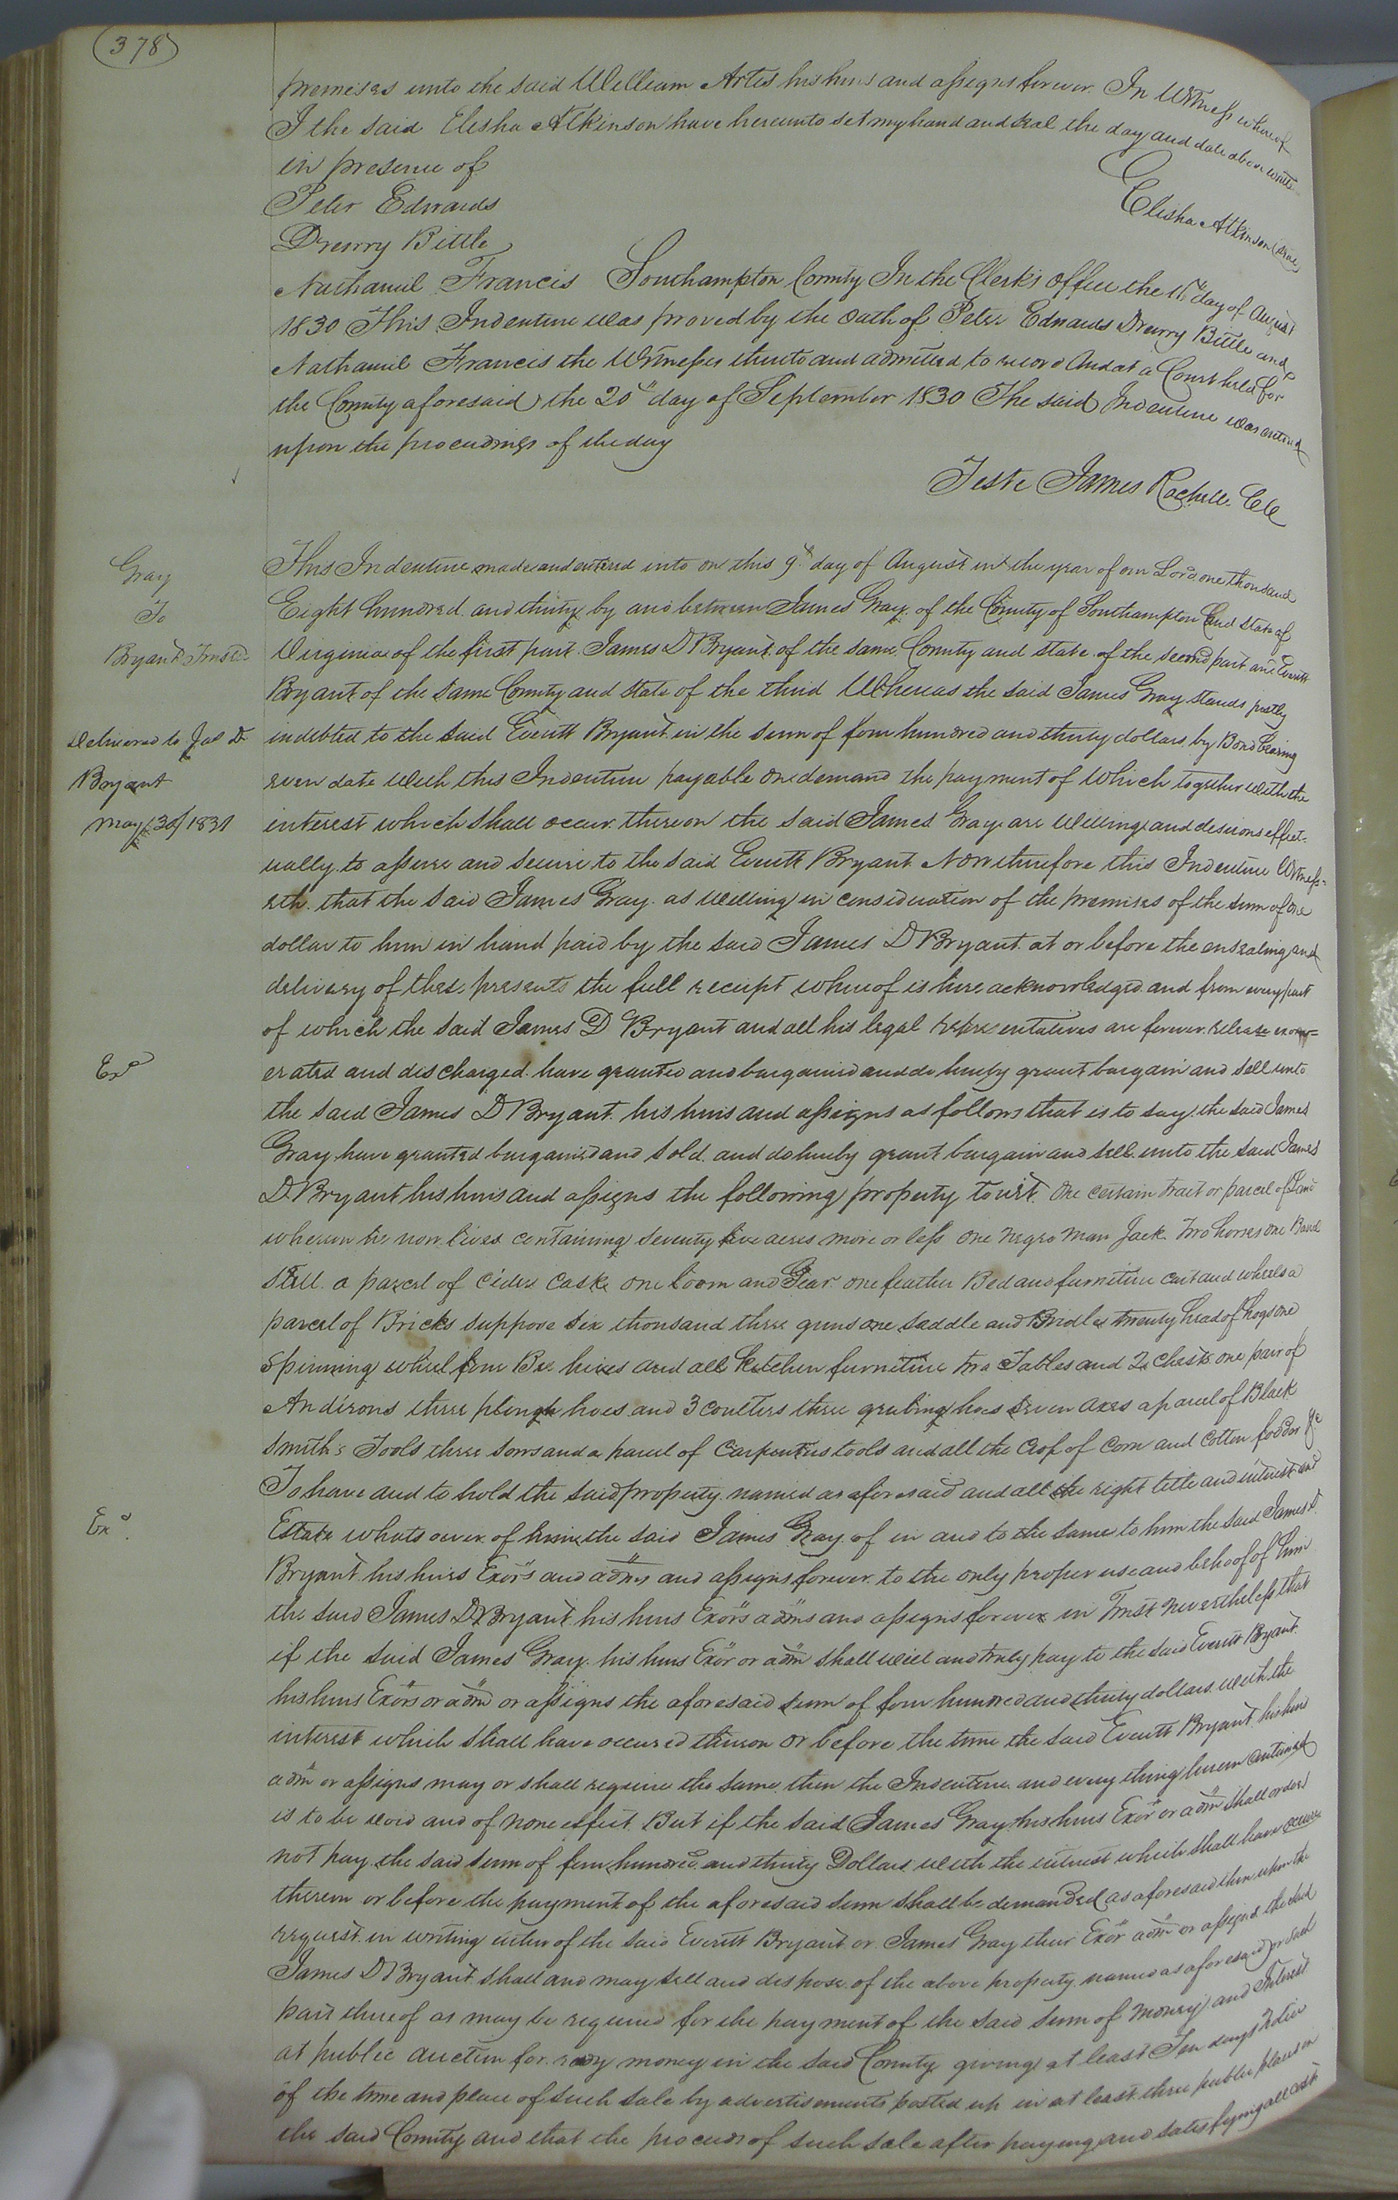 378
premises unto the said William Artis his heirs and assigns forever In Witness whereof
I the said Elisha Atkinson have hereunto set my hand and seal the day and date above
in presence of
Peter Edwards
Elisha Atkinson
Drewry Bittle
Nathaniel Francis Southampton County In the Clerks Office the day of August
1830 This Indenture was proved by the oath of Peter Edwards Drewry Bittle and
Nathaniel Francis the Witnesses thereto and admitted to record And at a Court held for
the County aforesaid the 20th day of September 1830 The said Indenture was entered
upon the proceedings of the day
Teste James Rochelle
Gray
To
Bryant Trustee
Delivered to Jas D.
Bryant
May 30 1831
This Indenture made and entered into on this 9th day of August in the year of our Lord one thousand
Eight hundred and thirty by and between James Gray of the County of Southampton and State of
Virginia of the first part James D Bryant of the same County and state of the second part and Everitt
Bryant of the same County and state of the third Whereas the said James Gray stands justly
indebted to the said Everitt Bryant in the sum of four hundred and thirty dollars by Bond bearing
even date with this Indenture payable on demand the payment of which together with the
interest which shall occur thereon the said James Gray are willing and desirous effect-
ually to assure and secure to the said Everitt Bryant Now therefore this Indenture Witness-
eth that the said James Gray as willing in consideration of the premises of the sum of one
dollar to him in hand paid by the said James D Bryant at or before the ensealing and
delivery of these presents the full receipt whereof is here acknowledged and from every part
of which the said James D Bryant and all his legal representatives are forever release exon-
erated and discharged have granted and bargained and do hereby grant bargain and sell unto
the said James D Bryant his heirs and assigns as follows that is to say the said James
Gray have granted bargained and sold and do hereby grant bargain and sell unto the said James
D. Bryant his heirs and assigns the following property to wit One certain tract or parcel of Land
wherein he now lives containing seventy five acres more or less one negro man Jack two horses one
Still a parcel of cider casks one loom and Gear one feather Bed and furniture cart and wheels a
parcel of Bricks suppose six thousand three guns one saddle and Bridle twenty head of hogs one
spinning wheel four Bee hives and all kitchen furniture two Tables and 2 chests one pair of
Andirons three plough hoes and 3 coulters three grubing hoes seven axes a parcel of Black
Smiths Tools three sows and a parcel of Carpenters tools and all the Crop of Corn and Cotton fodder &c
To have and to hold the said property named as aforesaid and all the right title and interest and
Estate whatsoever of him the said James Gray of in and to the same to him the said James D.
Bryant his heirs Exors and adms and assigns forever to the only proper use and behoof of him
the said James D Bryant his heirs Exors adms and assigns forever in Trust nevertheless that
if the said James Gray his heirs Exor or adm shall well and truly pay to the said Everitt Bryant
his heirs Exors or adm or assigns the aforesaid sum of four hundred and thirty dollars with the
interest which shall have occured thereon or before the time the said Everitt Bryant his heirs
adm or assigns may or shall require the same then the Indenture and every thing herein contained
is to be void and of none effect But if the said James Gray his heirs Exor or adm shall
not pay the said sum of four hundred and thirty Dollars with the interest which shall have
thereon or before the payment of the aforesaid sum shall be demanded as aforesaid then when the
request in writing either of the said Everitt Bryant or James Gray their Exor adm or assigns the said
James D Bryant shall and may sell and dispose of the above property named as aforesaid or such
part thereof as may be required for the payment of the said sum of money and Interest
at public auction for ready money in the said County giving at least Ten days Notice
of the time and place of such sale by advertisements posted up in at least three public places in
the said County and that the proceeds of such sale after paying and satisfying all costs
Exd
Exd.